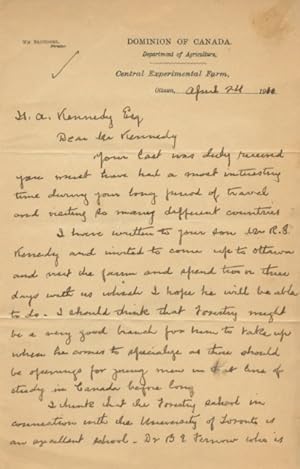 Wm Saunders,
Director
DOMINION OF CANADA.
Department of Agriculture,
Central Experimental Farm,
Ottawa, April 24 1910
H. A. Kennedy Esq
Dear Mr Kennedy
Your last was duly received
you must have had a most interesting
time during your long period of travel
and visiting so many different countries
I have written to your son Mr R. S.
Kennedy and invited to come up to Ottawa
and visit the farm and spend two or three
days with us which I hope he will be able
to do. I should think that Forestry might
be a very good branch for him to take up
when he comes to specialize as there should
be openings for young men in that line of
study in Canada before long
I think that the Forestry school in
connection with the University of Toronto is
an excellent school. Dr B E Fernow who is